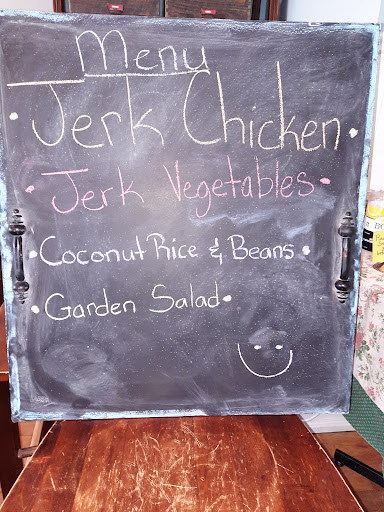 Menu
• Jerk Chicken •
• Jerk Vegetables •
• Coconut Rice & Beans •
• Garden Salad •